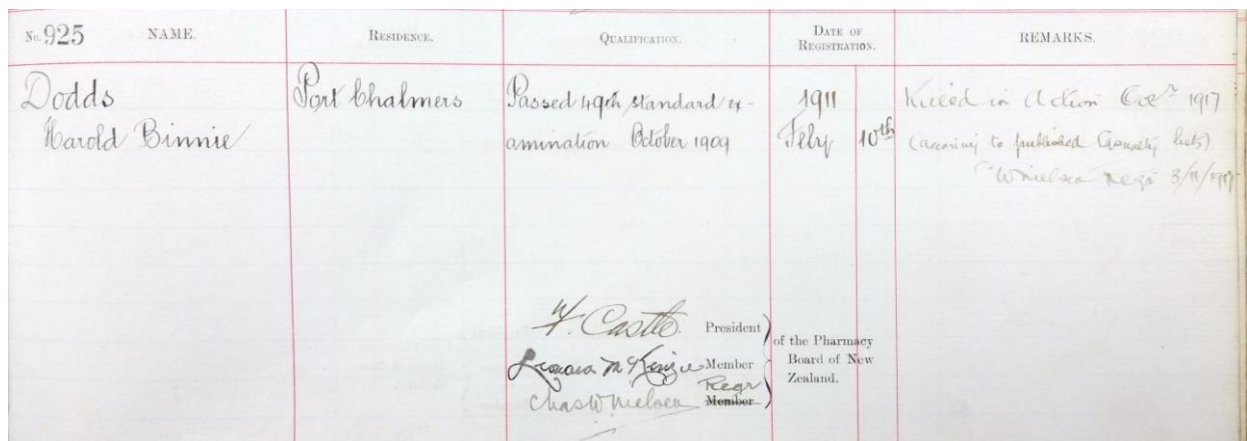 No. 925 NAME. RESIDENCE. QUALIFICATION. DATE OF REGISTRATION. REMARKS.
Dodds
Harold Binnie
Port Chalmers
Passed 49th standard ex-
amination October 1909
1911
Feby 10th
Killed in Action Octr 1917
(according to published Casualty lists)
Nielsen Regr 3/11/1917
W. Castle President
McKenzie Member
Regr
Chas W Nielsen Member
of the Pharmacy
Board of New
Zealand.